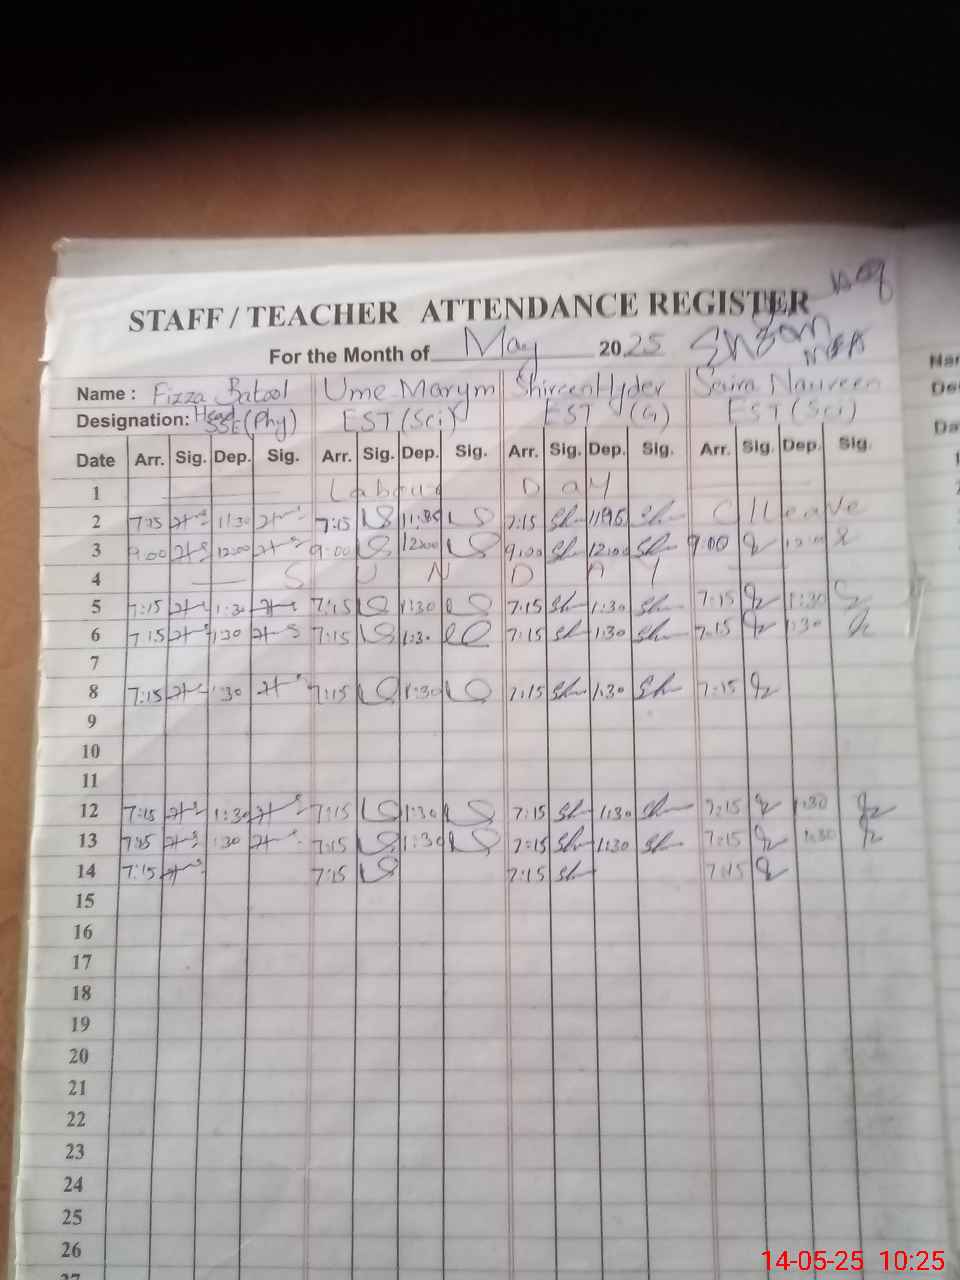 STAFF / TEACHER ATTENDANCE REGISTER
For the Month of May 2025
Name : Fizza Batool Ume Marym Shireen Hyder Saira Naureen
Designation: Head SSE (Phy) EST (Sci) EST (G) EST (Sci)
Date Arr. Sig. Dep. Sig. Arr. Sig. Dep. Sig. Arr. Sig. Dep. Sig. Arr. Sig. Dep. Sig.
1 Labour Day
2 7:15 11:30 7:15 7:15 Sh Sh C/Leave
3 9:00 12:00 9:00 12:00 9:00 Sh 12:00 Sh 9:00 12:00
4 SUNDAY
5 7:15 1:30 7:15 1:30 7:15 Sh 1:30 Sh 7:15 1:30
6 7:15 1:30 7:15 1:30 7:15 Sh 1:30 Sh 7:15 1:30
7
8 7:15 1:30 7:15 1:30 7:15 Sh 1:30 Sh 7:15
9
10
11
12 7:15 1:30 7:15 1:30 7:15 Sh 1:30 Sh 7:15 1:30
13 7:15 1:30 7:15 1:30 7:15 Sh 1:30 Sh 7:15 1:30
14 7:15 7:15 7:15 Sh 7:15
15
16
17
18
19
20
21
22
23
24
25
26
27
14-05-25 10:25